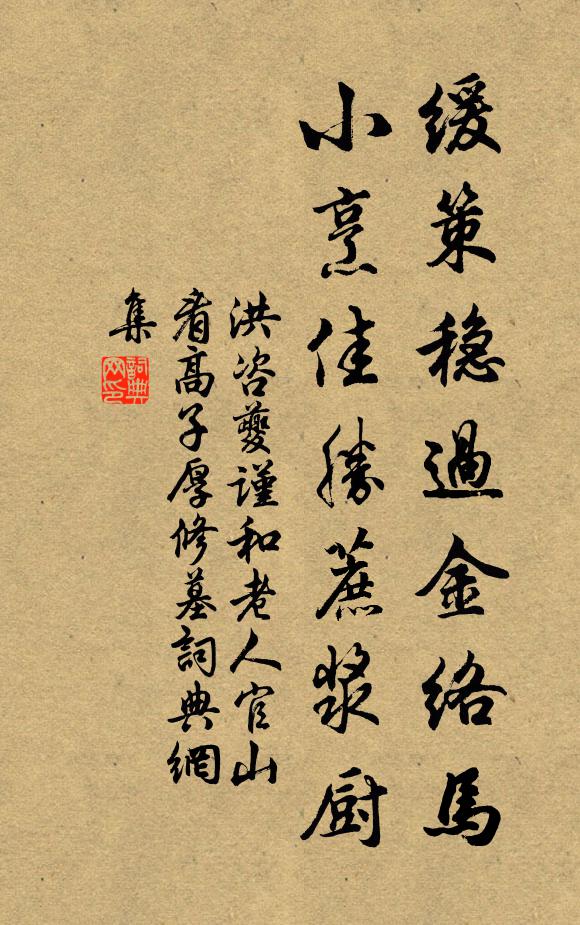 缓策稳過金络馬
小烹佳勝蔗漿厨
洪咨夔謹和老人官山
看高子厚修墓詞典網
集
詞典
网印